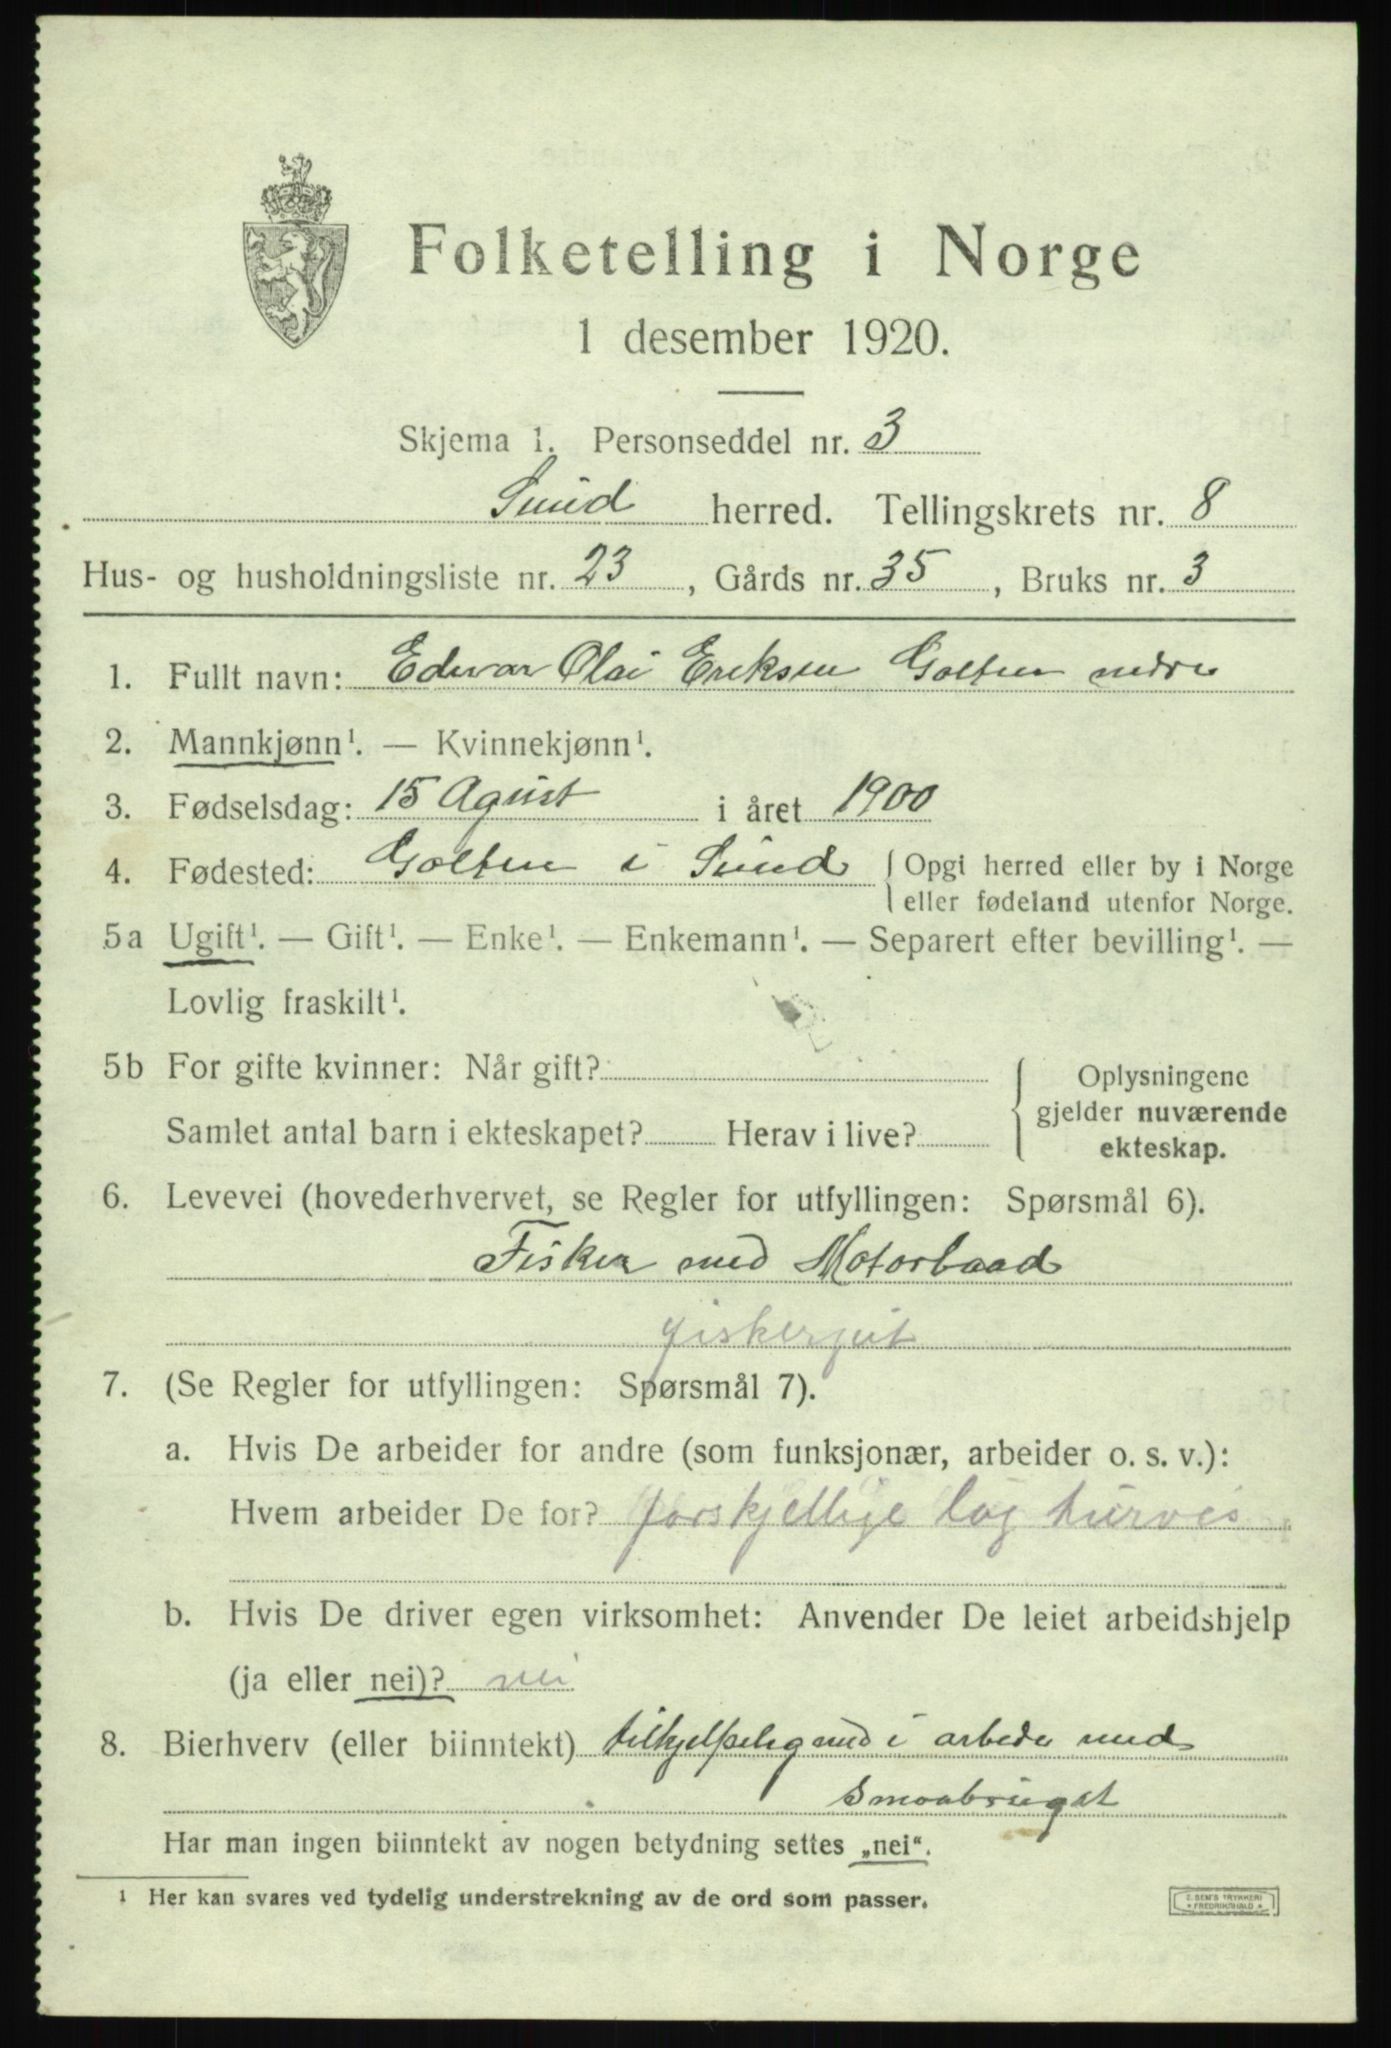 Folketelling i Norge
1 desember 1920.
Skjema 1. Personseddel nr. 3
Sund herred. Tellingskrets nr. 8
Hus- og husholdningsliste nr. 23, Gårds nr. 35, Bruks nr. 3
1. Fullt navn: Edvar Olai Eriksen Golten nedre
2. Mannkjønn¹. — Kvinnekjønn¹.
3. Fødselsdag: 15 Agust i året 1900
4. Fødested: Golten i Sund { Opgi herred eller by i Norge
eller fødeland utenfor Norge.
5a Ugift¹. — Gift¹. — Enke¹. — Enkemann¹. — Separert efter bevilling¹. —
Lovlig fraskilt¹.
5b For gifte kvinner: Når gift? Oplysningene
gjelder nuværende
Samlet antal barn i ekteskapet? Herav i live? ekteskap.
6. Levevei (hovederhvervet, se Regler for utfyllingen: Spørsmål 6).
Fisker med Motorbaad
fiskergut
7. (Se Regler for utfyllingen: Spørsmål 7).
a. Hvis De arbeider for andre (som funksjonær, arbeider o. s. v.):
Hvem arbeider De for? forskjellige lag turvis
b. Hvis De driver egen virksomhet: Anvender De leiet arbeidshjelp
(ja eller nei)? nei
8. Bierhverv (eller biinntekt) tilhjelpelig med i arbede med
Smaabruget
Har man ingen biinntekt av nogen betydning settes „nei“.
¹ Her kan svares ved tydelig understrekning av de ord som passer.
E. SEM'S TRYKKERI
* FREDRIKSHALD *